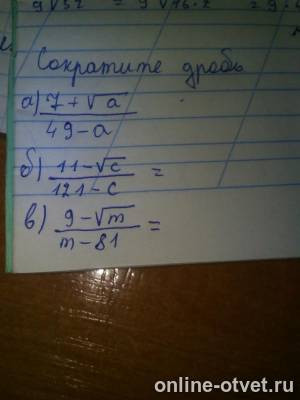 Сократите дробь
а) 7 + √a / 49 - a
б) 11 - √c / 121 - c =
в) 9 - √m / m - 81 =
online-otvet.ru